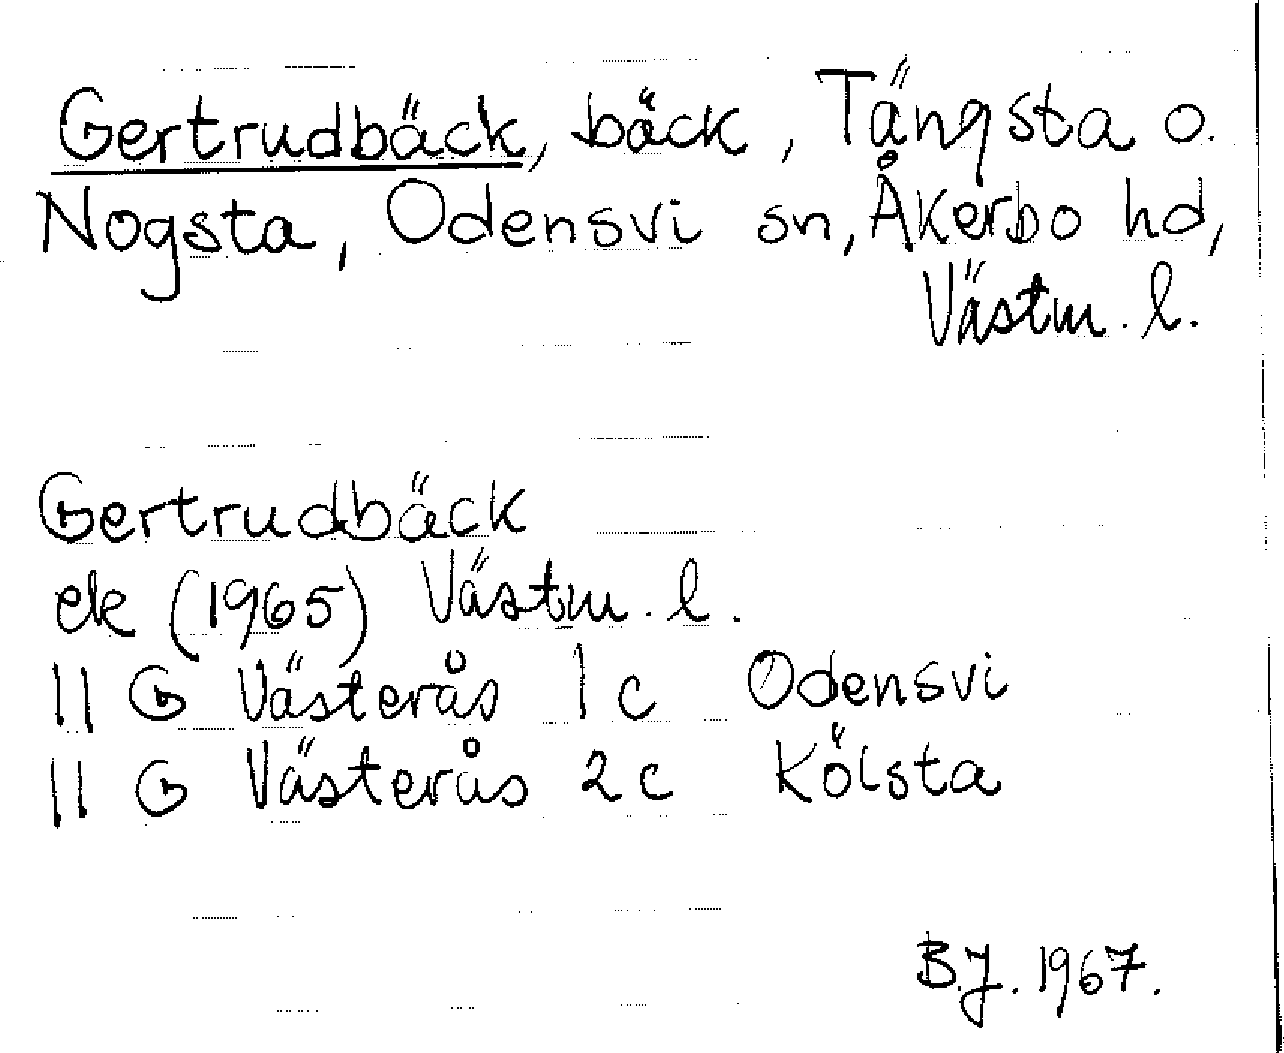 Gertrudbäck, bäck, Tängsta o.
Nogsta, Odensvi sn, Åkerbo hd,
Västm. l.
Gertrudbäck
ek (1965) Västm. l.
11 G Västerås 1 c Odensvi
11 G Västerås 2 c Kölsta
B.J. 1967.